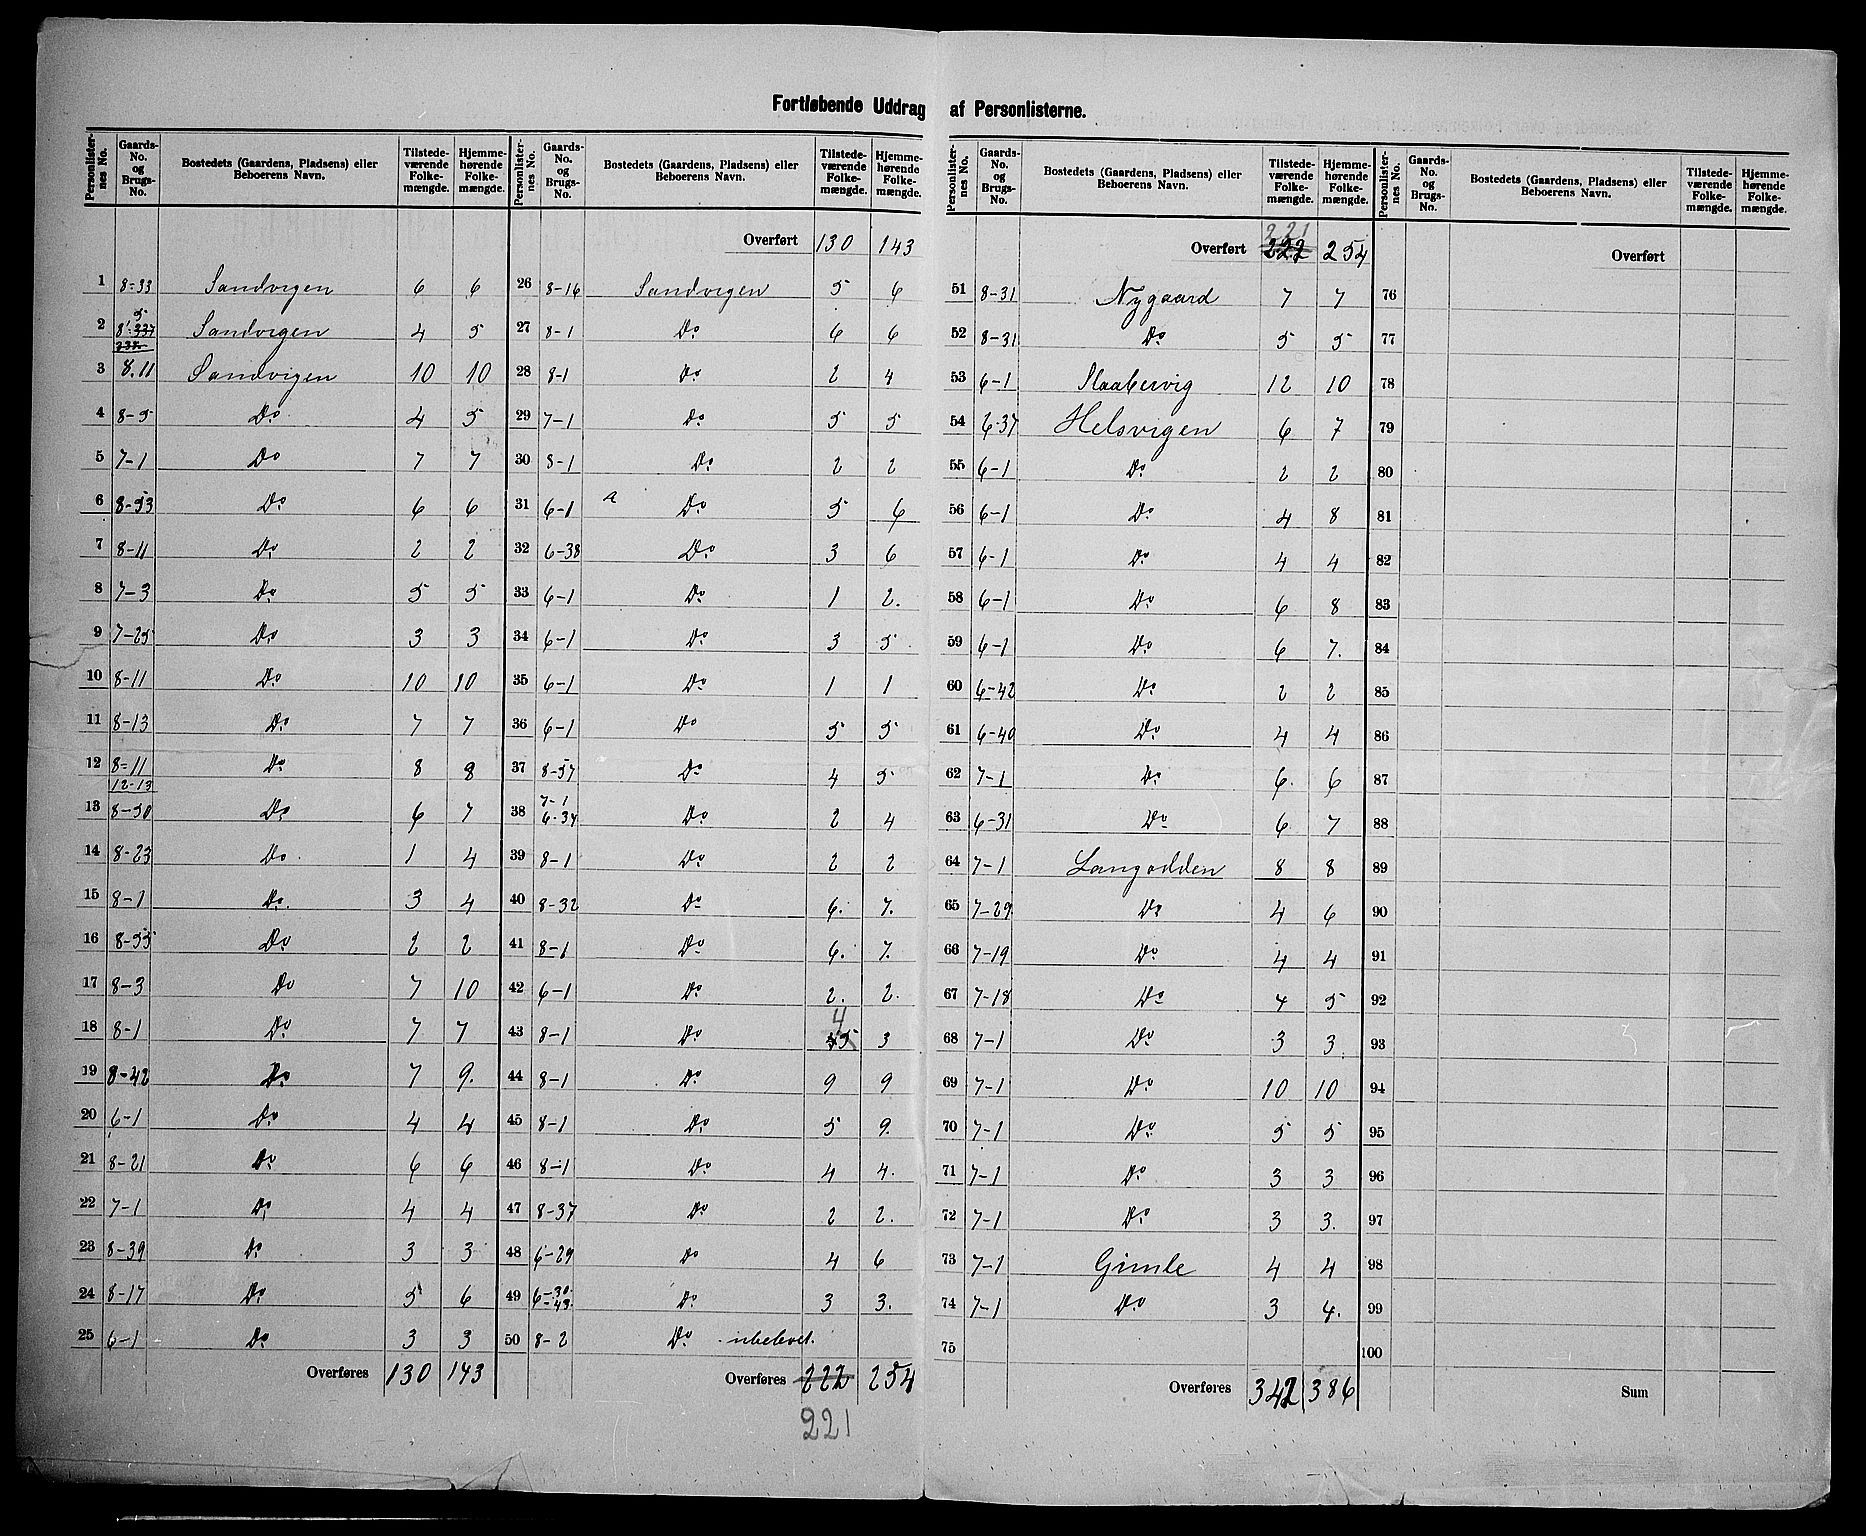 Fortløbende Uddrag af Personlisterne.
Personlister-nes No. | Gaards-No. og Brugs-No. | Bostedets (Gaardens, Pladsens) eller Beboerens Navn. | Tilstede-værende Folke-mængde. | Hjemme-hørende Folke-mængde.
1 8-33 Sandvigen 6 6
2 8-5 Sandvigen 4 5
3 8.11 Sandvigen 10 10
4 8-5 Do 4 5
5 7-1 Do 7 7
6 8-53 Do 6 6
7 8-11 Do 2 2
8 7-3 Do 5 5
9 7-25 Do 3 3
10 8-11 Do 10 10
11 8-13 Do 7 7
12 8-11 12-13 Do 8 8
13 8-50 Do 6 7
14 8-23 Do 1 4
15 8-1 Do 3 4
16 8-55 Do 2 2
17 8-3 Do 7 10
18 8-1 Do 7 7
19 8-42 Do 7 9.
20 6-1 Do 4 4
21 8-21 Do 6 6
22 7-1 Do 4 4
23 8-39 Do 3 3
24 8-17 Do 5 6
25 6-1 Do 3 3
Overføres 130 143
Personlister-nes No. | Gaards-No. og Brugs-No. | Bostedets (Gaardens, Pladsens) eller Beboerens Navn. | Tilstede-værende Folke-mængde. | Hjemme-hørende Folke-mængde.
Overført 130 143
26 8-16 Sandvigen 5 6
27 8-1 Do 6 6
28 8-1 Do 2 4
29 7-1 Do 5 5
30 8-1 Do 2 2
31 6-1 a Do 5 6
32 6-38 Do 3 6
33 6-1 Do 1 2.
34 6-1 Do 3 5.
35 6-1 Do 1 1
36 6-1 Do 5 5
37 8-57 Do 4 5
38 7-1 6-34 Do 2 4
39 8-1 Do 2 2
40 8-32 Do 6. 7.
41 8-1 Do 6. 7.
42 6-1 Do 2. 2.
43 8-1 Do 4 3
44 8-1 Do 9 9
45 8-1 Do 5 9.
46 8-1 Do 4 4.
47 8-37 Do 2 2.
48 6-29 Do 4 6
49 6-30-43. Do 3 3.
50 8-2 Do ubeboet.
Overføres 222 254
221
Personlister-nes No. | Gaards-No. og Brugs-No. | Bostedets (Gaardens, Pladsens) eller Beboerens Navn. | Tilstede-værende Folke-mængde. | Hjemme-hørende Folke-mængde.
221
Overført 222 254
51 8-31 Nygaard 7 7
52 8-31 Do 5 5
53 6-1 Staabervig 12 10
54 6-37 Helsvigen 6 7
55 6-1 Do 2 2
56 6-1 Do 4 8
57 6-1 Do 4 4
58 6-1 Do 6 8
59 6-1 Do 6 7.
60 6-42 Do 2 2
61 6-40 Do 4 4
62 7-1 Do 6. 6
63 6-31 Do 6 7
64 7-1 Langodden 8 8
65 7-29 Do 4 6
66 7-19 Do 4 4
67 7-18 Do 4 5
68 7-1 Do 3 3
69 7-1 Do 10 10
70 7-1 Do 5 5
71 7-1 Do 3 3
72 7-1 Do 3 3.
73 7-1 Gimle 4 4
74 7-1 Do 3 4.
75
Overføres 342 386
Personlister-nes No. | Gaards-No. og Brugs-No. | Bostedets (Gaardens, Pladsens) eller Beboerens Navn. | Tilstede-værende Folke-mængde. | Hjemme-hørende Folke-mængde.
Overført
76
77
78
79
80
81
82
83
84
85
86
87
88
89
90
91
92
93
94
95
96
97
98
99
100
Sum